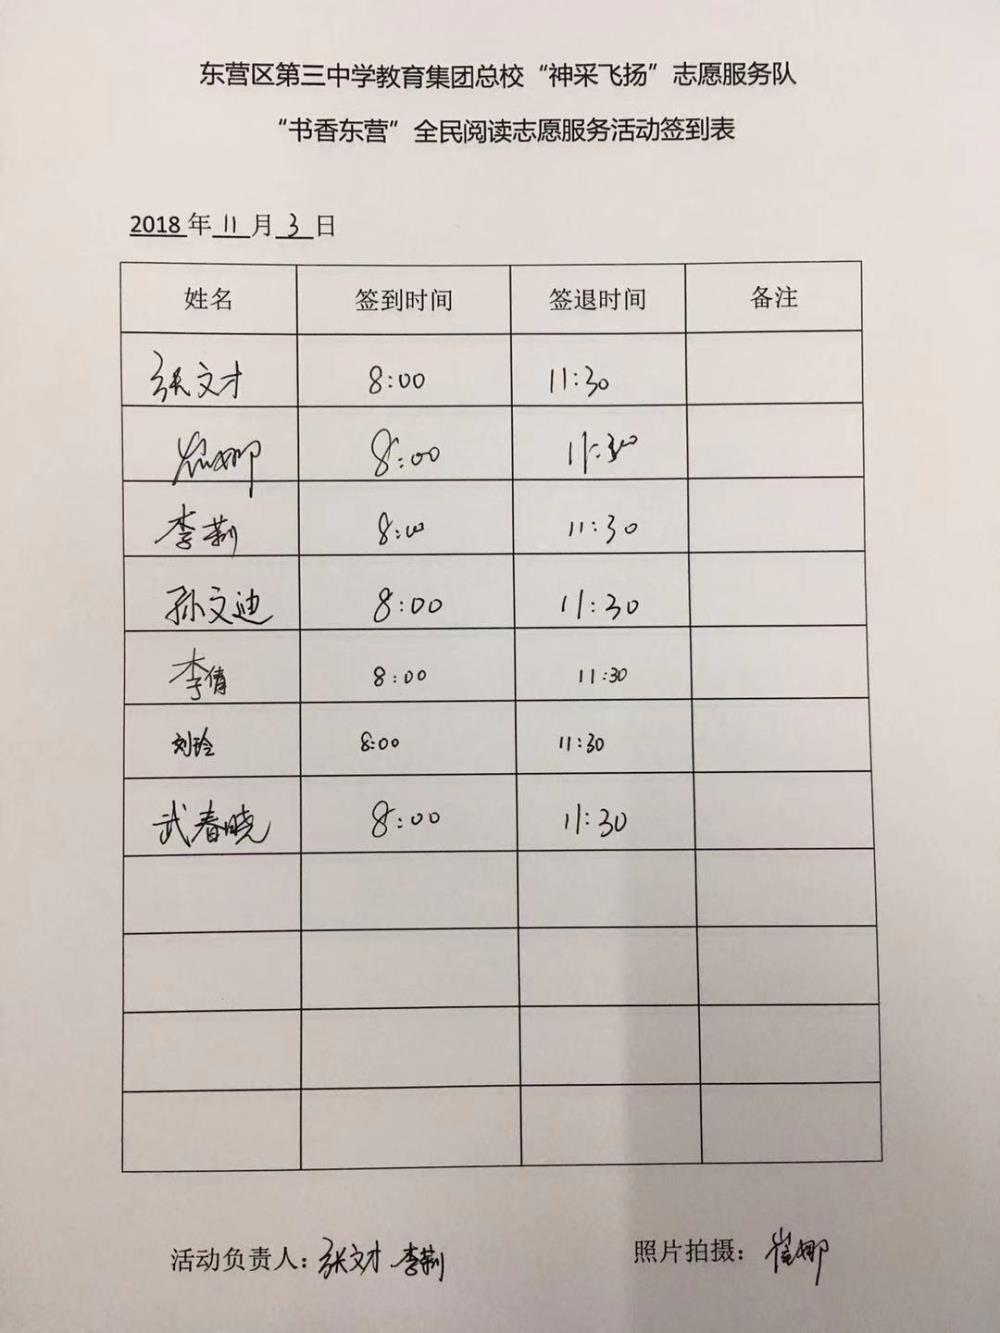 东营区第三中学教育集团总校“神采飞扬”志愿服务队
“书香东营”全民阅读志愿服务活动签到表
2018 年 11 月 3 日
姓名 签到时间 签退时间 备注
张文才 8:00 11:30
崔娜 8:00 11:30
李莉 8:00 11:30
孙文迪 8:00 11:30
李倩 8:00 11:30
刘玲 8:00 11:30
武春晓 8:00 11:30
活动负责人：张文才 李莉 照片拍摄：崔娜